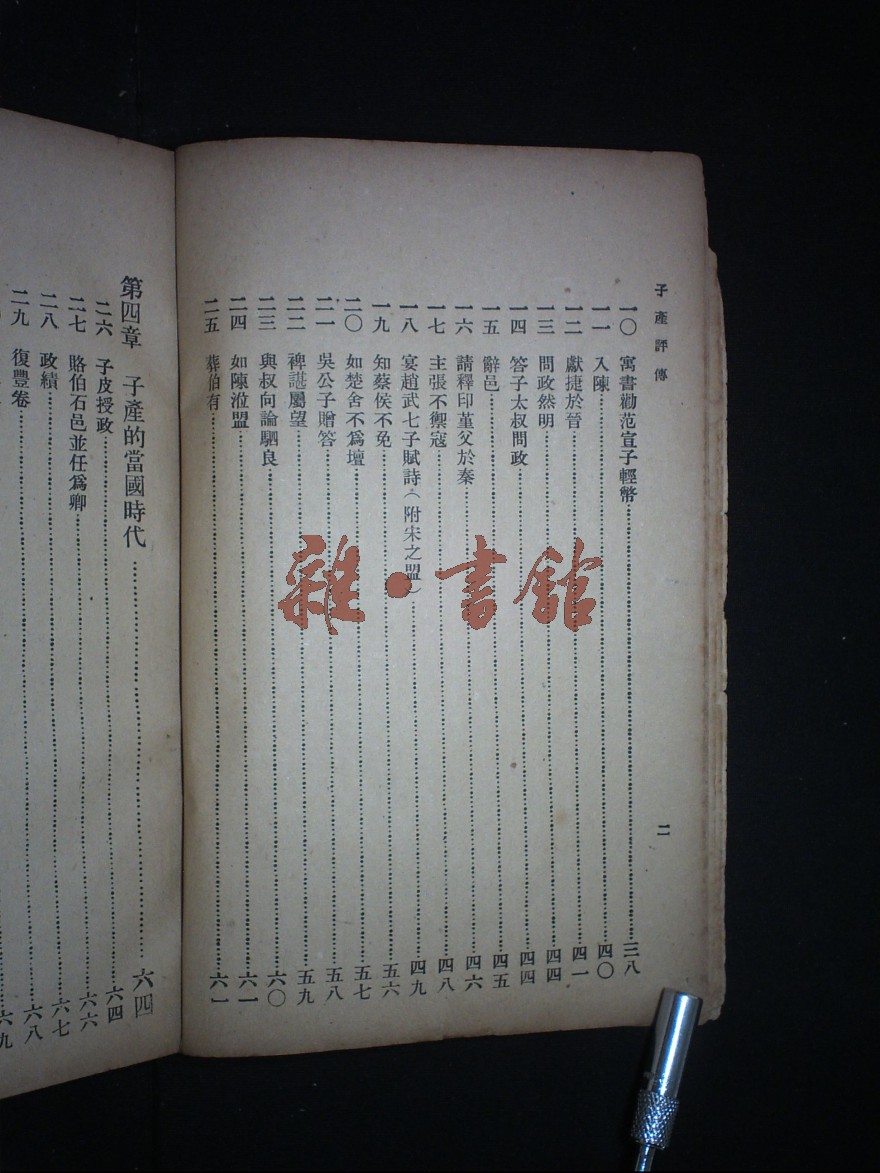 子產評傳
二
一〇 寓書勸范宣子輕幣 三八
一一 入陳 四〇
一二 獻捷於晉 四一
一三 問政然明 四四
一四 答子太叔問政 四四
一五 辭邑 四五
一六 請釋印堇父於秦 四六
一七 主張不禦寇 四八
一八 宴趙武七子賦詩（附宋之盟） 四九
一九 知蔡侯不免 五六
二〇 如楚舍不爲壇 五七
二一 吳公子贈答 五八
二二 裨諶屬望 五九
二三 與叔向論駟良 六〇
二四 如陳涖盟 六一
二五 葬伯有 六一
第四章 子產的當國時代 六四
二六 子皮授政 六四
二七 賂伯石邑並任爲卿 六六
二八 政績 六七
二九 復豐卷 六八
六九
雜·書館